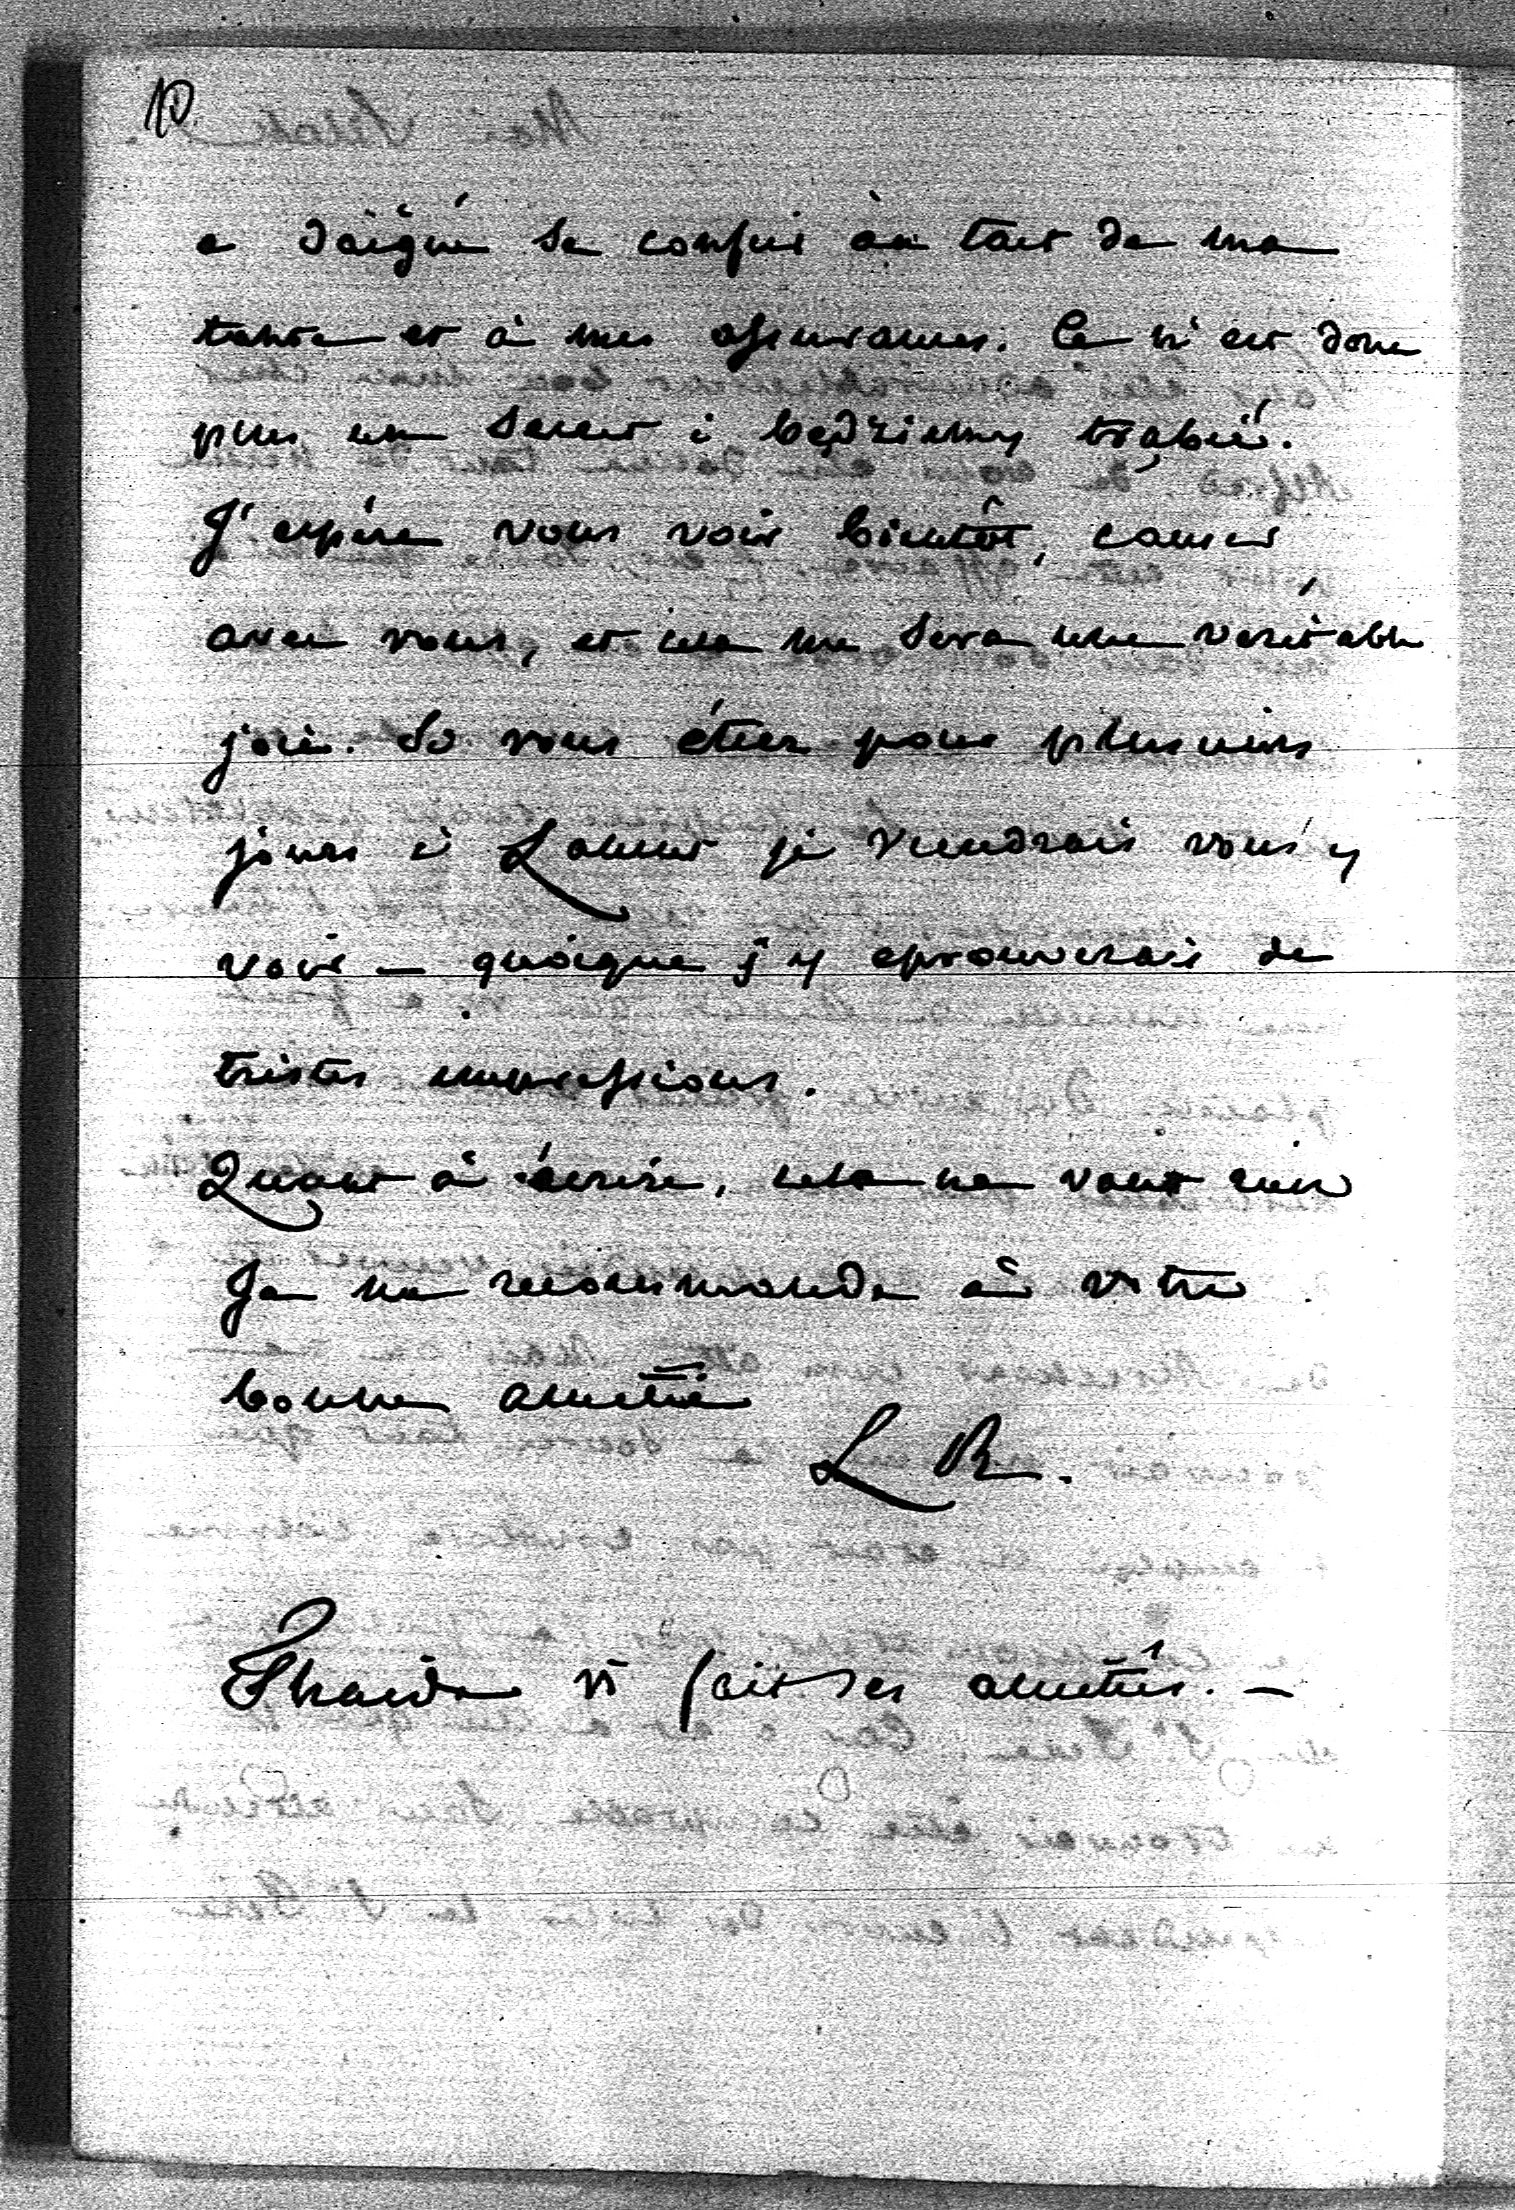 10
a daigné se confier au tact de ma
tante et à mes assurances. Ce n'est donc
plus un secret i będziemy trąbić.
J'espère vous voir bientôt, causer
avec vous, et cela me sera une véritable
joie. Si vous étiez pour plusieurs
jours à Lancut je viendrais vous y
voir — quoique j'y eprouverais de
tristes impressions.
Quant à écrire, cela ne vaut rien
Je me recommande à votre
bonne amitié
L R.
fait ses amitiés. —